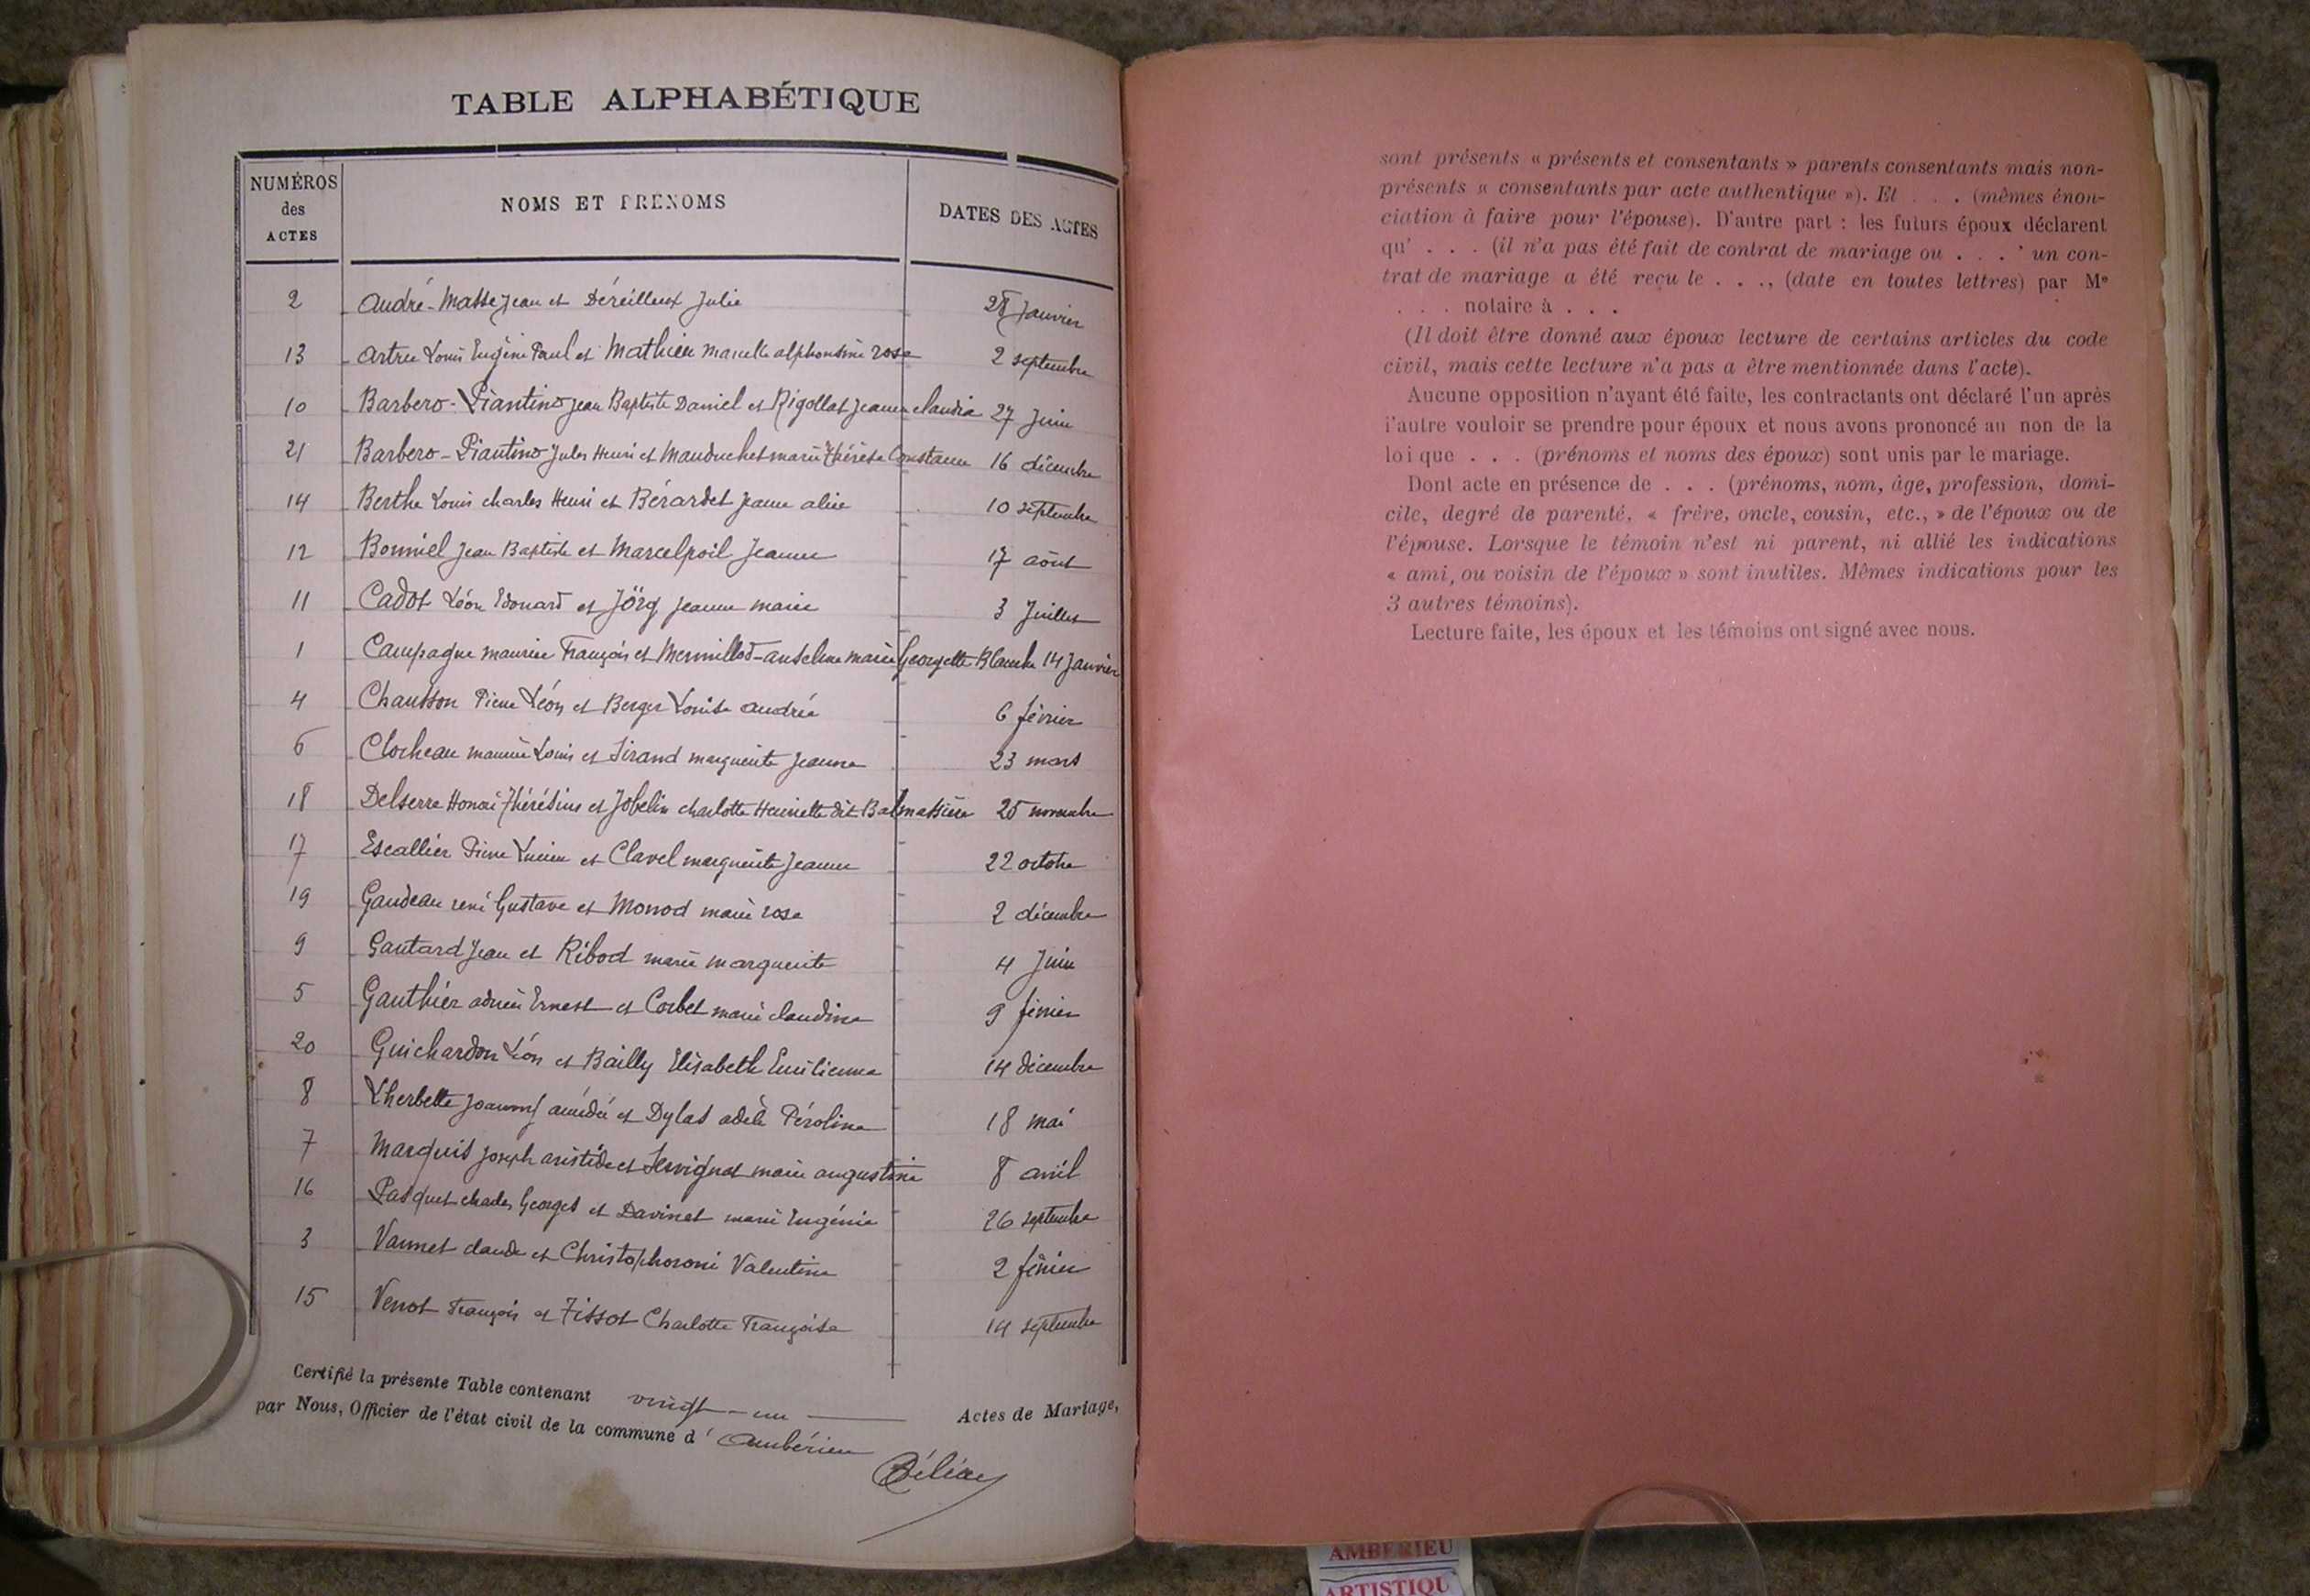 TABLE ALPHABÉTIQUE
NUMÉROS des ACTES NOMS ET PRÉNOMS DATES DES ACTES
2 André-Masse Jean et Déreilleux Julie 28 Janvier
13 Artru Louis Eugène Paul et Mathieu Marcelle alphonsine rose 2 septembre
10 Barbero-Piantino Jean Baptiste Daniel et Rigollat Jeanne claudia 27 Juin
21 Barbero-Piantino Jules Henri et Manduchet marie Thérèse Constance 16 décembre
14 Berthe Louis charles Henri et Bérardet Jeanne alice 10 septembre
12 Bonniel Jean Baptiste et Marcelpoil Jeanne 17 août
11 Cadot Léon Edouard et Jörg Jeanne marie 3 Juillet
1 Campagne maurice François et Mermillod-anselme marie Georgette Blanche 14 Janvier
4 Chausson Pierre Léon et Berger Louise andrée 6 février
6 Clocheau maurice Louis et Sirand marguerite Jeanne 23 mars
18 Delserre Honoré Thérésius et Jobelin charlotte Henriette dit Balmassière 25 novembre
17 Escallier Pierre Lucien et Clavel marguerite Jeanne 22 octobre
19 Gaudeau rené Gustave et Monod marie rose 2 décembre
9 Gautard Jean et Ribod marie marguerite 4 Juin
5 Gauthier adrien Ernest et Corbet marie claudine 9 février
20 Guichardon Léon et Bailly Elisabeth Emilienne 14 décembre
8 Lherbette Joannès amédée et Dylas adèle Péroline 18 mai
7 Marquis Joseph aristide et Servignat marie augustine 8 avril
16 Pasquet charles Georges et Davinet marie Eugénie 26 septembre
3 Vannet claude et Christophoroni Valentine 2 février
15 Venot François et Tissot Charlotte Françoise 14 septembre
Certifié la présente Table contenant vingt-un Actes de Mariage,
par Nous, Officier de l'état civil de la commune d' Ambérieu
sont présents « présents et consentants » parents consentants mais non-
présents « consentants par acte authentique »). Et . . . (mêmes énon-
ciation à faire pour l'épouse). D'autre part : les futurs époux déclarent
qu' . . . (il n'a pas été fait de contrat de mariage ou . . . ' un con-
trat de mariage a été reçu le . . ., (date en toutes lettres) par Me
. . . notaire à . . .
(Il doit être donné aux époux lecture de certains articles du code
civil, mais cette lecture n'a pas a être mentionnée dans l'acte).
Aucune opposition n'ayant été faite, les contractants ont déclaré l'un après
l'autre vouloir se prendre pour époux et nous avons prononcé au non de la
loi que . . . (prénoms et noms des époux) sont unis par le mariage.
Dont acte en présence de . . . (prénoms, nom, âge, profession, domi-
cile, degré de parenté, « frère, oncle, cousin, etc., » de l'époux ou de
l'épouse. Lorsque le témoin n'est ni parent, ni allié les indications
« ami, ou voisin de l'époux » sont inutiles. Mêmes indications pour les
3 autres témoins).
Lecture faite, les époux et les témoins ont signé avec nous.
AMBERIEU
ARTISTIQU